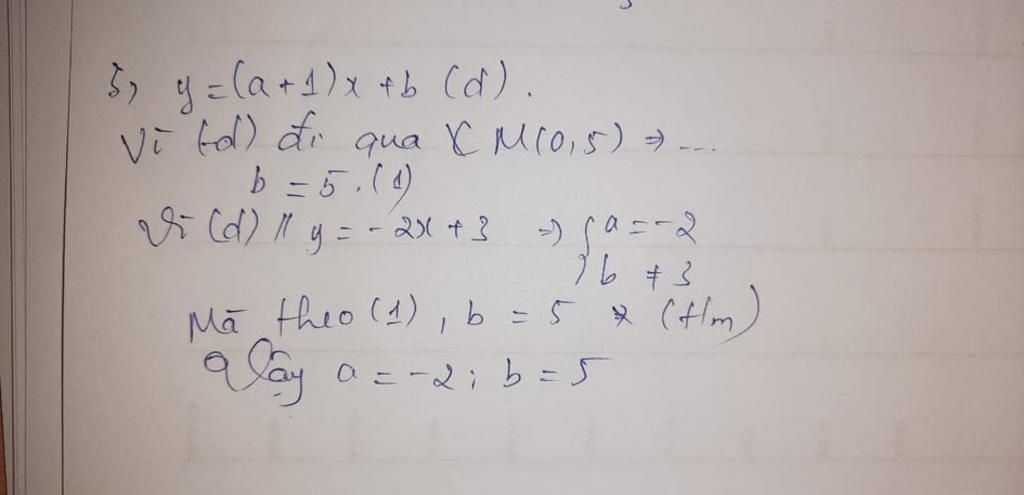 5, y = (a+1)x + b (d).
Vì (d) đi qua M(0,5) ⇒ ...
b = 5. (1)
Vì (d) // y = -2x + 3 ⇒ { a = -2
{ b ≠ 3
Mà theo (1), b = 5 (t/m)
Vậy a = -2; b = 5